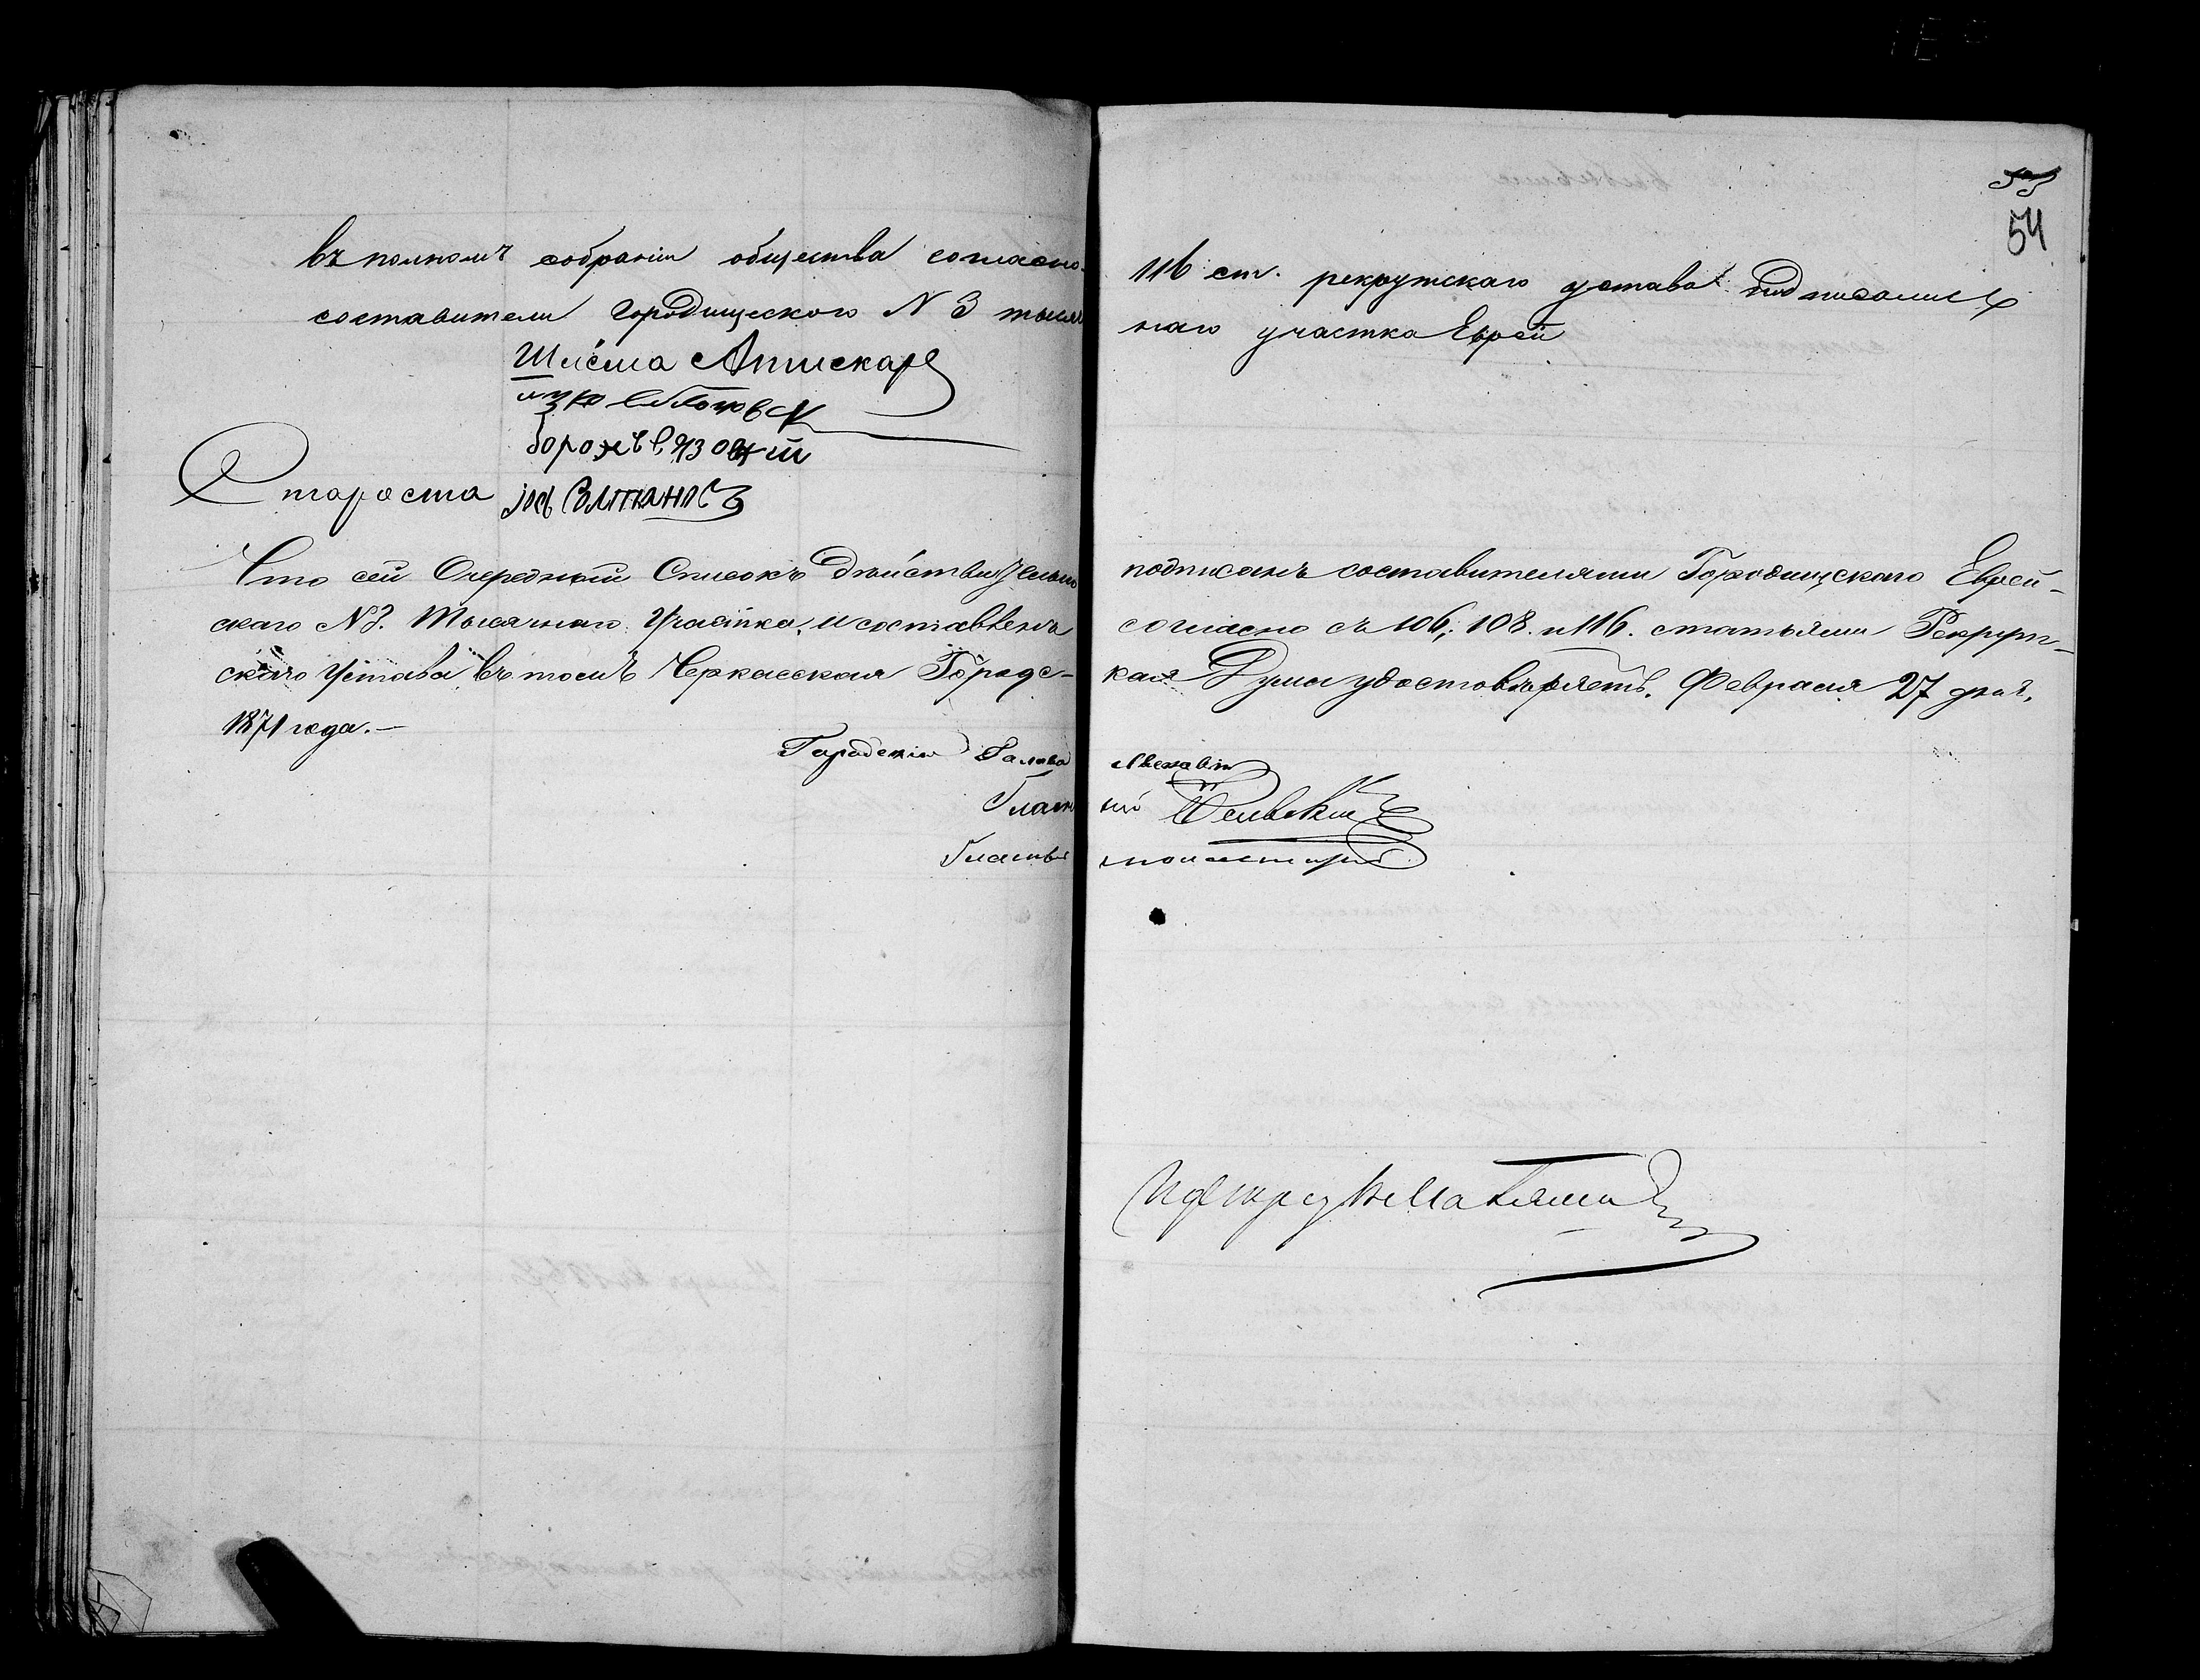 53
54
въ полномъ собраніи общества согласно 116 ст. рекрутскаго устава подписались
составители Городищеского N 3 тысячнаго участка Еврей
Шлёма Аптекарь
Староста
Что сей Очередной Списокъ дѣйствительно подписанъ составителями Городищскаго Еврей-
скаго N 3. Тысячнаго Участка, и составленъ согласно съ 106, 108. и 116. статьями Рекрут-
скаго Устава въ томъ Черкасская Городс-кая Дума удостовѣряетъ. Февраля 27 дня,
1871 года.—
Городский Голова
Гласный
Гласный